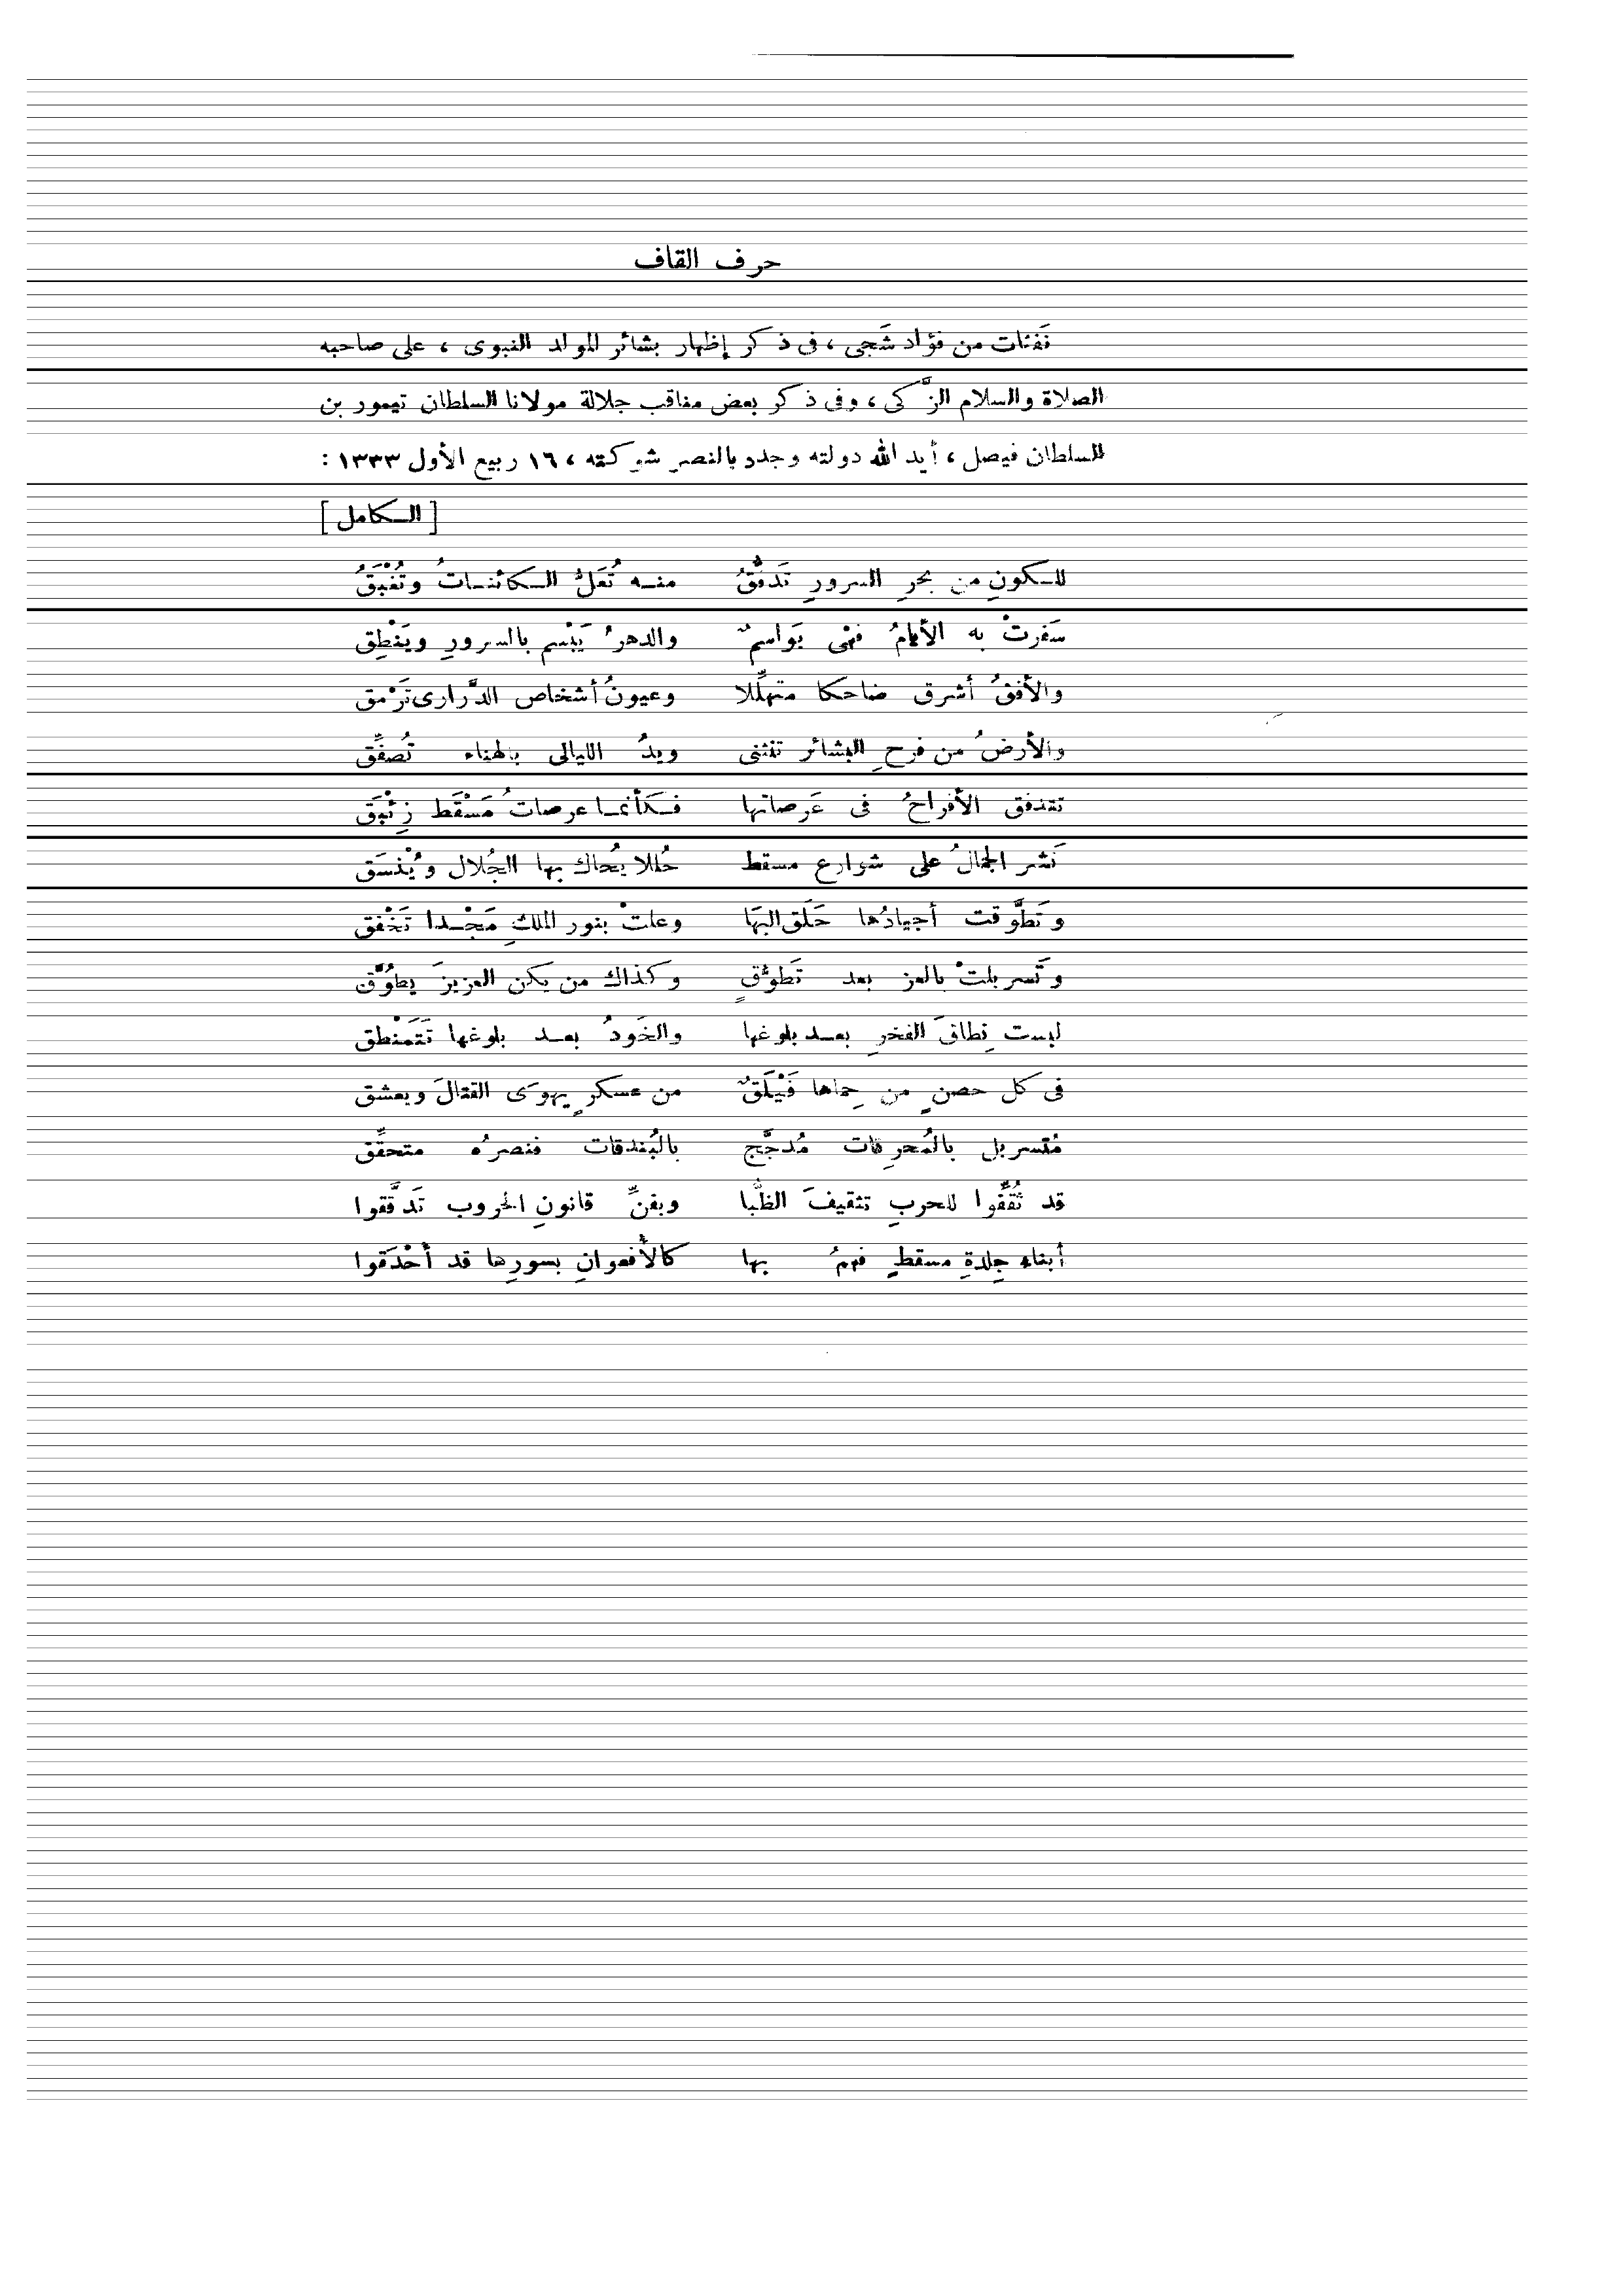 حرف القاف
نَفَثات من فؤاد شَجى ، فى ذكر إظهار بشائر المولد النبوى ، على صاحبه
الصلاة والسلام الزَّكى ، وفى ذكر بعض مناقب جلالة مولانا السلطان تيمور بن
السلطان فيصل ، أيد الله دولته وجدد بالنصر شوكته ، ١٦ ربيع الأول ١٣٣٣ :
[ الكامل ]
للكونِ من بحرِ السرورِ تَدفُّقُ منه تُعَلُّ الكائناتُ وتُغْبَقُ
سَفرتْ به الأيامُ فهْى بَواسمٌ والدهرُ يَبْسم بالسرورِ ويَنْطِق
والأفقُ أشرق ضاحكا متهلِّلا وعيونُ أشخاص الدَّرارى تَرْمق
والأرضُ من فرحِ البشائر تنثنى ويدُ الليالى بالهناء تُصفِّق
تتدفق الأفراحُ فى عَرصاتها فكأنما عرصاتُ مَسْقَط زِئْبَق
نَشر الجمالُ على شوارع مسقط حُللا يُحاك بها الجُلال ويُنْسَق
وتَطوَّقت أجيادُها حَلَق البهَا وعلتْ بنور الملكِ مَجْدا تَخْفق
وتَسربلتْ بالعز بعد تَطوُّقٍ وكذاك من يكن العزيزَ يطوَّق
لبست نِطاقَ الفخرِ بعد بلوغها والخَودُ بعد بلوغها تَتَمنْطق
فى كل حصنٍ من حِماها فَيْلَقٌ من عسكرٍ يهوَى القتالَ ويعشق
مُتسربل بالمُحرِقات مُدجَّج بالبُندقات فنصرُه متحقِّق
قد ثُقِّفوا للحربِ تثقيفَ الظُّبا وبفنِّ قانونِ الحروب تَدقَّقوا
أبناء جِلدةِ مسقطٍ فهمُ بها كالأفعوانِ بسورِها قد أحْدَقوا